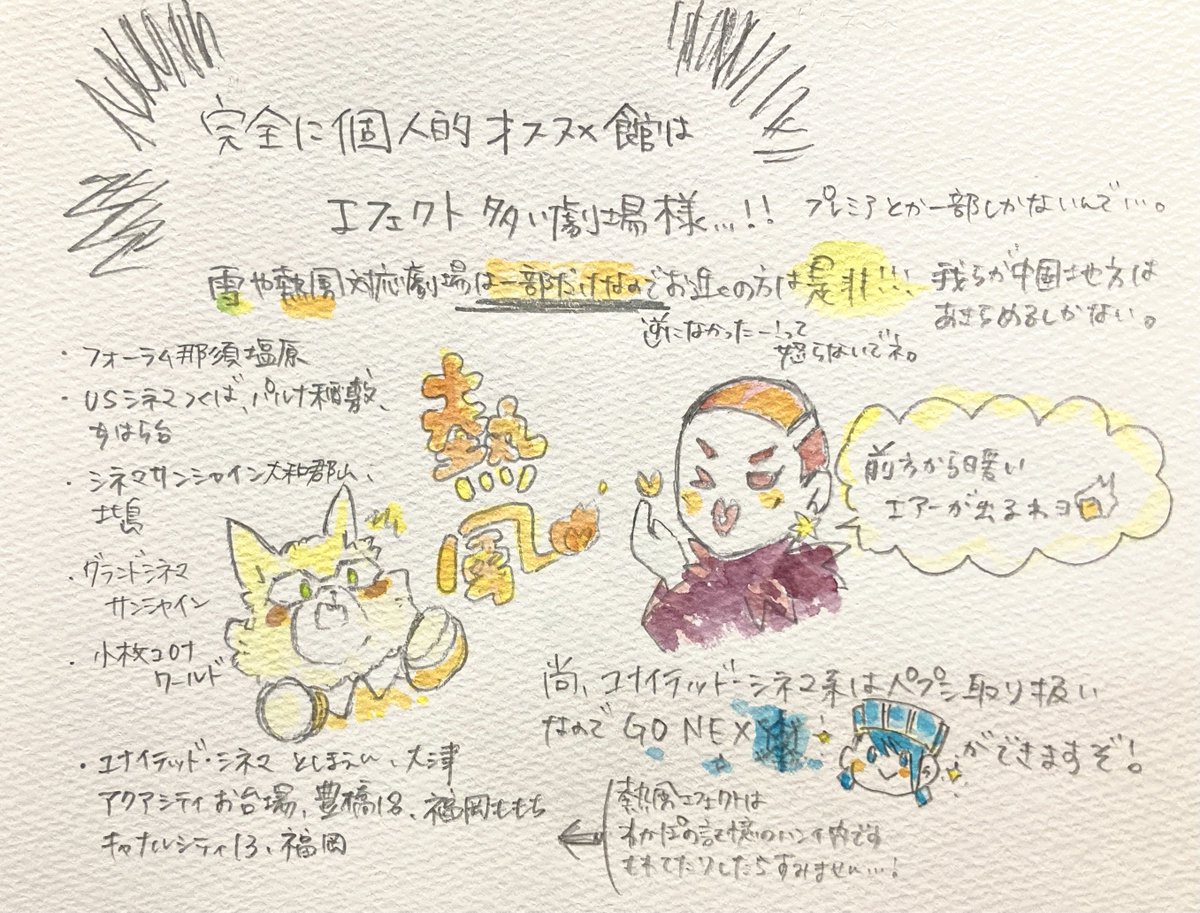 完全に個人的オススメ館は
エフェクト多い劇場様…!!
プレミアとか一部しかないんで…。
雪や熱風対応劇場は一部だけなのでお近くの方は是非!!!
我らが中国地方は
あきらめるしかない。
逆になかったー!って
怒らないでネ。
・フォーラム那須塩原
・USシネマつくば、パルナ稲敷、
ちはら台
・シネマサンシャイン大和郡山、
土島
・グランドシネマ
サンシャイン
・小牧コロナ
ワールド
・ユナイテッド・シネマ としまえん、大津
アクアシティお台場、豊橋18、福岡ももち
キャナルシティ13、福岡
熱
風
前方から暖い
エアーが出るわヨ
尚、ユナイテッド・シネマ系はペプシ取り扱い
なので GO NEXT
ができますぞ!
熱風エフェクトは
わかぽの記憶のハンイ内です
もれてたりしたらすみません…!